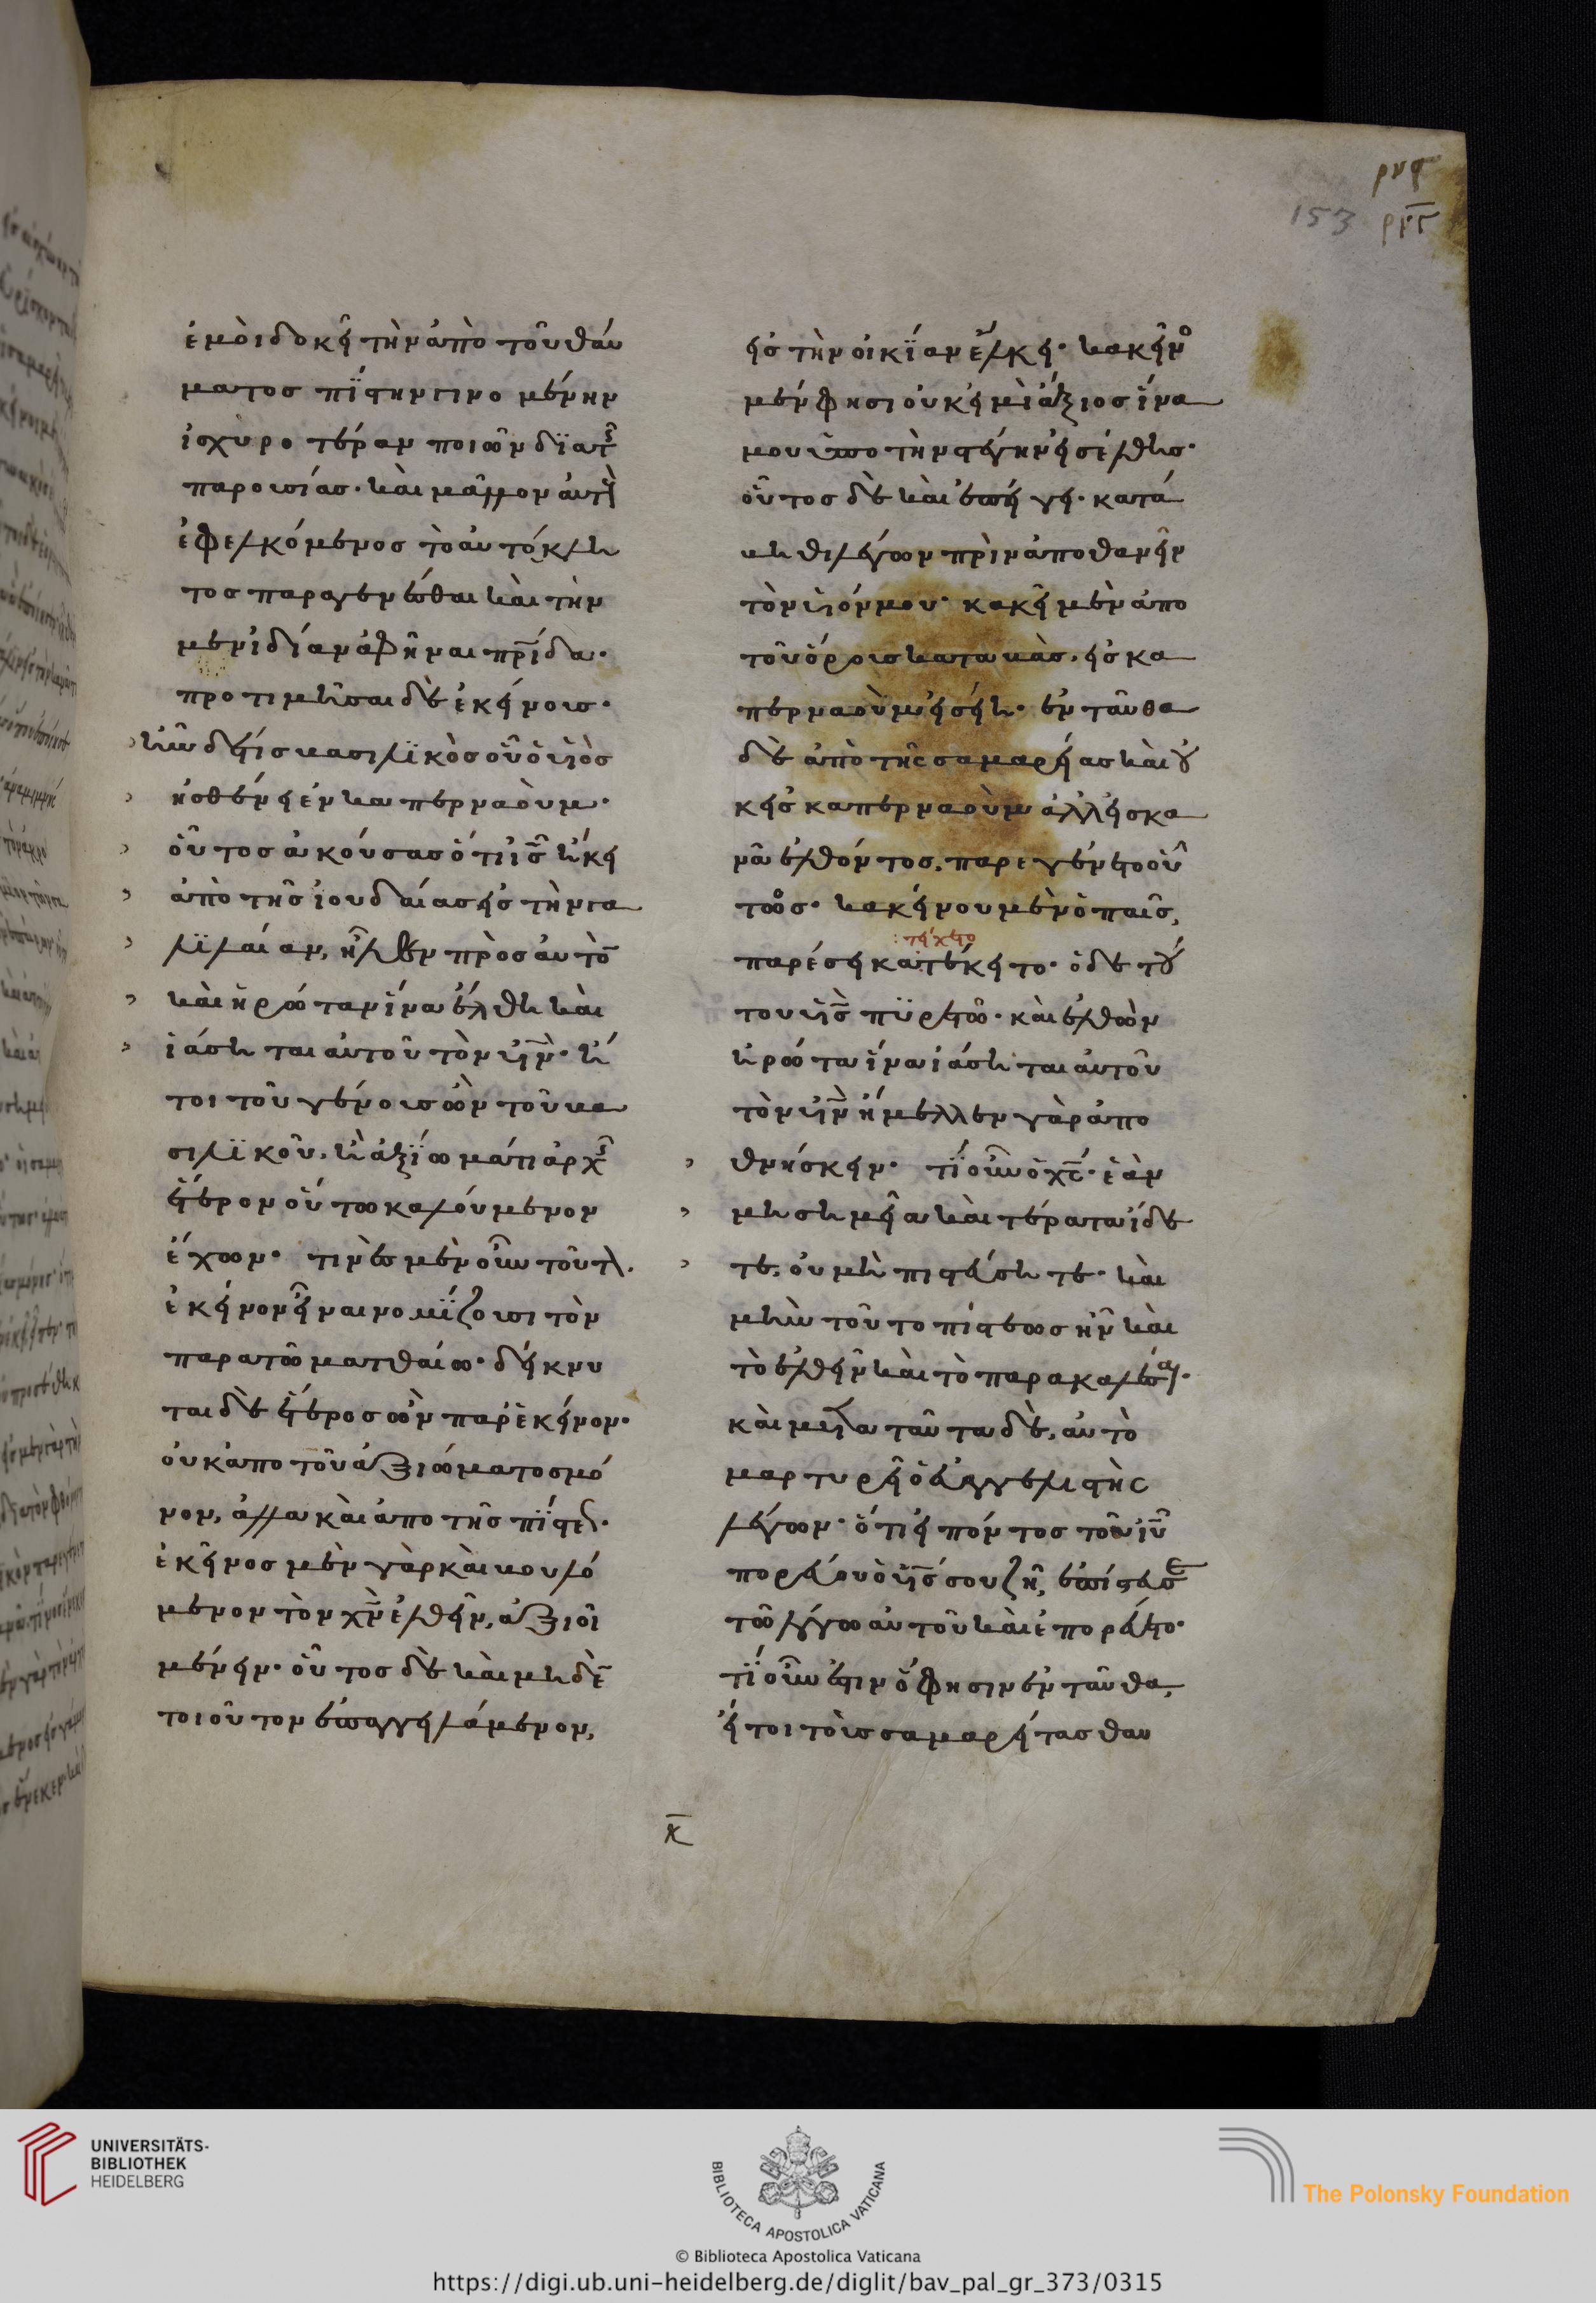 ἐμοὶ δοκεῖ τὴν ἀπὸ τοῦ θαύ
ματος πίστην γινομένην
ἰσχυροτέραν ποιῶν διὰ τῆς
παρουσίας· καὶ μᾶλλον αὐτοὺς
ἐφελκόμενος τὸ αὐτόκλη
τος παραγενέσθαι καὶ τὴν
μὲν ἰδίαν ἀφῆναι πρ̅ίδα·
προτιμῆσαι δὲ ἐκείνους·
ἦν δέ τις βασιλϊκὸς οὗ ὁ υἱὸς
ἠσθένει ἐν καπερναοὺμ·
οὗτος ἀκούσας ὅτι ις̅ ἥκει
ἀπὸ τῆς ἰουδαίας εἰς τὴν γα
λϊλαίαν, ἦλθεν πρὸς αὐτὸν
καὶ ἠρώτα ἵνα ἔλθη καὶ
ἰάσηται αὐτοῦ τὸν υἱν̅· ἤ
τοι τοῦ γένους ὢν τοῦ βα
σιλϊκοῦ, ἢ ἀξίωμά τι ἀρχῆς
ἕτερον οὕτω καλούμενον
ἔχων· τινὲς μὲν οὖν τοῦτον
ἐκεῖνον εἶναι νομΐζουσι τὸν
παρὰ τῶ ματθαίω· δείκνυ
ται δὲ ἕτερος ὢν παρ' ἐκεῖνον·
οὐκ ἀπὸ τοῦ ἀξιώματος μό
νον, ἀλλὰ καὶ ἀπὸ τῆς πΐστεως·
ἐκεῖνος μὲν γὰρ καὶ βουλό
μενον τὸν χν̅ ἐλθεῖν, ἀξιοῖ
μένειν· οὗτος δὲ καὶ μηδὲν
τοιοῦτον ἐπαγγειλάμενον,
ρνγ
153 ρνγ
εἰς τὴν οἰκΐαν εἷλκει· κακεῖνος
μέν φησι οὐκ εἰμὶ ἄξιος ἵνα
μου ὑπὸ τὴν στέγην εἰσέλθης·
οὗτος δὲ καὶ ἐπείγει· κατά
βηθι λέγων πρὶν ἀποθανεῖν
τὸν υἱόν μου· κακεῖ μὲν ἀπο
τοῦ ὄρους καταβὰς, εἰς κα
περναοὺμ εἰσήει· ἐνταῦθα
δὲ ἀπὸ τῆς σαμαρείας καὶ οὐ
κ εἰς καπερναοὺμ ἀλλ' εἰς κα
νᾶ ἐλθόντος, παρεγένετο οὗ
τος· κακείνου μὲν ὁ παῖς,
: τείχετο
παρέσει κατέκειτο· ὁ δὲ τού
του υἱς̅ πϋρετῶ· καὶ ἐλθὼν
ἠρώτα ἵνα ἰάσηται αὐτοῦ
τὸν υἱν̅ ἤμελλεν γὰρ ἀπο
θνήσκειν· τΐ οὖν ὁ χς̅· ἐὰν
μὴ σημεῖα καὶ τέρατα ἴδη
τε, οὐ μὴ πιστεύσητε· καὶ
μὴν τοῦτο πίστεως ἦν καὶ
τὸ ἐλθεῖν καὶ τὸ παρακαλέσαι·
καὶ μετὰ ταῦτα δὲ, αὐτὸ
μαρτυρεῖ ὁ εὐαγγελιστὴς
λέγων· ὅτι εἰπόντος τοῦ ιυ̅
πορεύου ὁ υἱς̅ σου ζῆ, ἐπίστευσε
τῶ λόγω αὐτοῦ καὶ ἐπορεύετο·
τΐ οὖν ἐστιν ὅ φησιν ἐνταῦθα,
ἤτοι τοὺς σαμαρείτας θαυ
κ̅
UNIVERSITÄTS-
BIBLIOTHEK
HEIDELBERG
BIBLIOTECA APOSTOLICA VATICANA
The Polonsky Foundation
© Biblioteca Apostolica Vaticana
https://digi.ub.uni-heidelberg.de/diglit/bav_pal_gr_373/0315